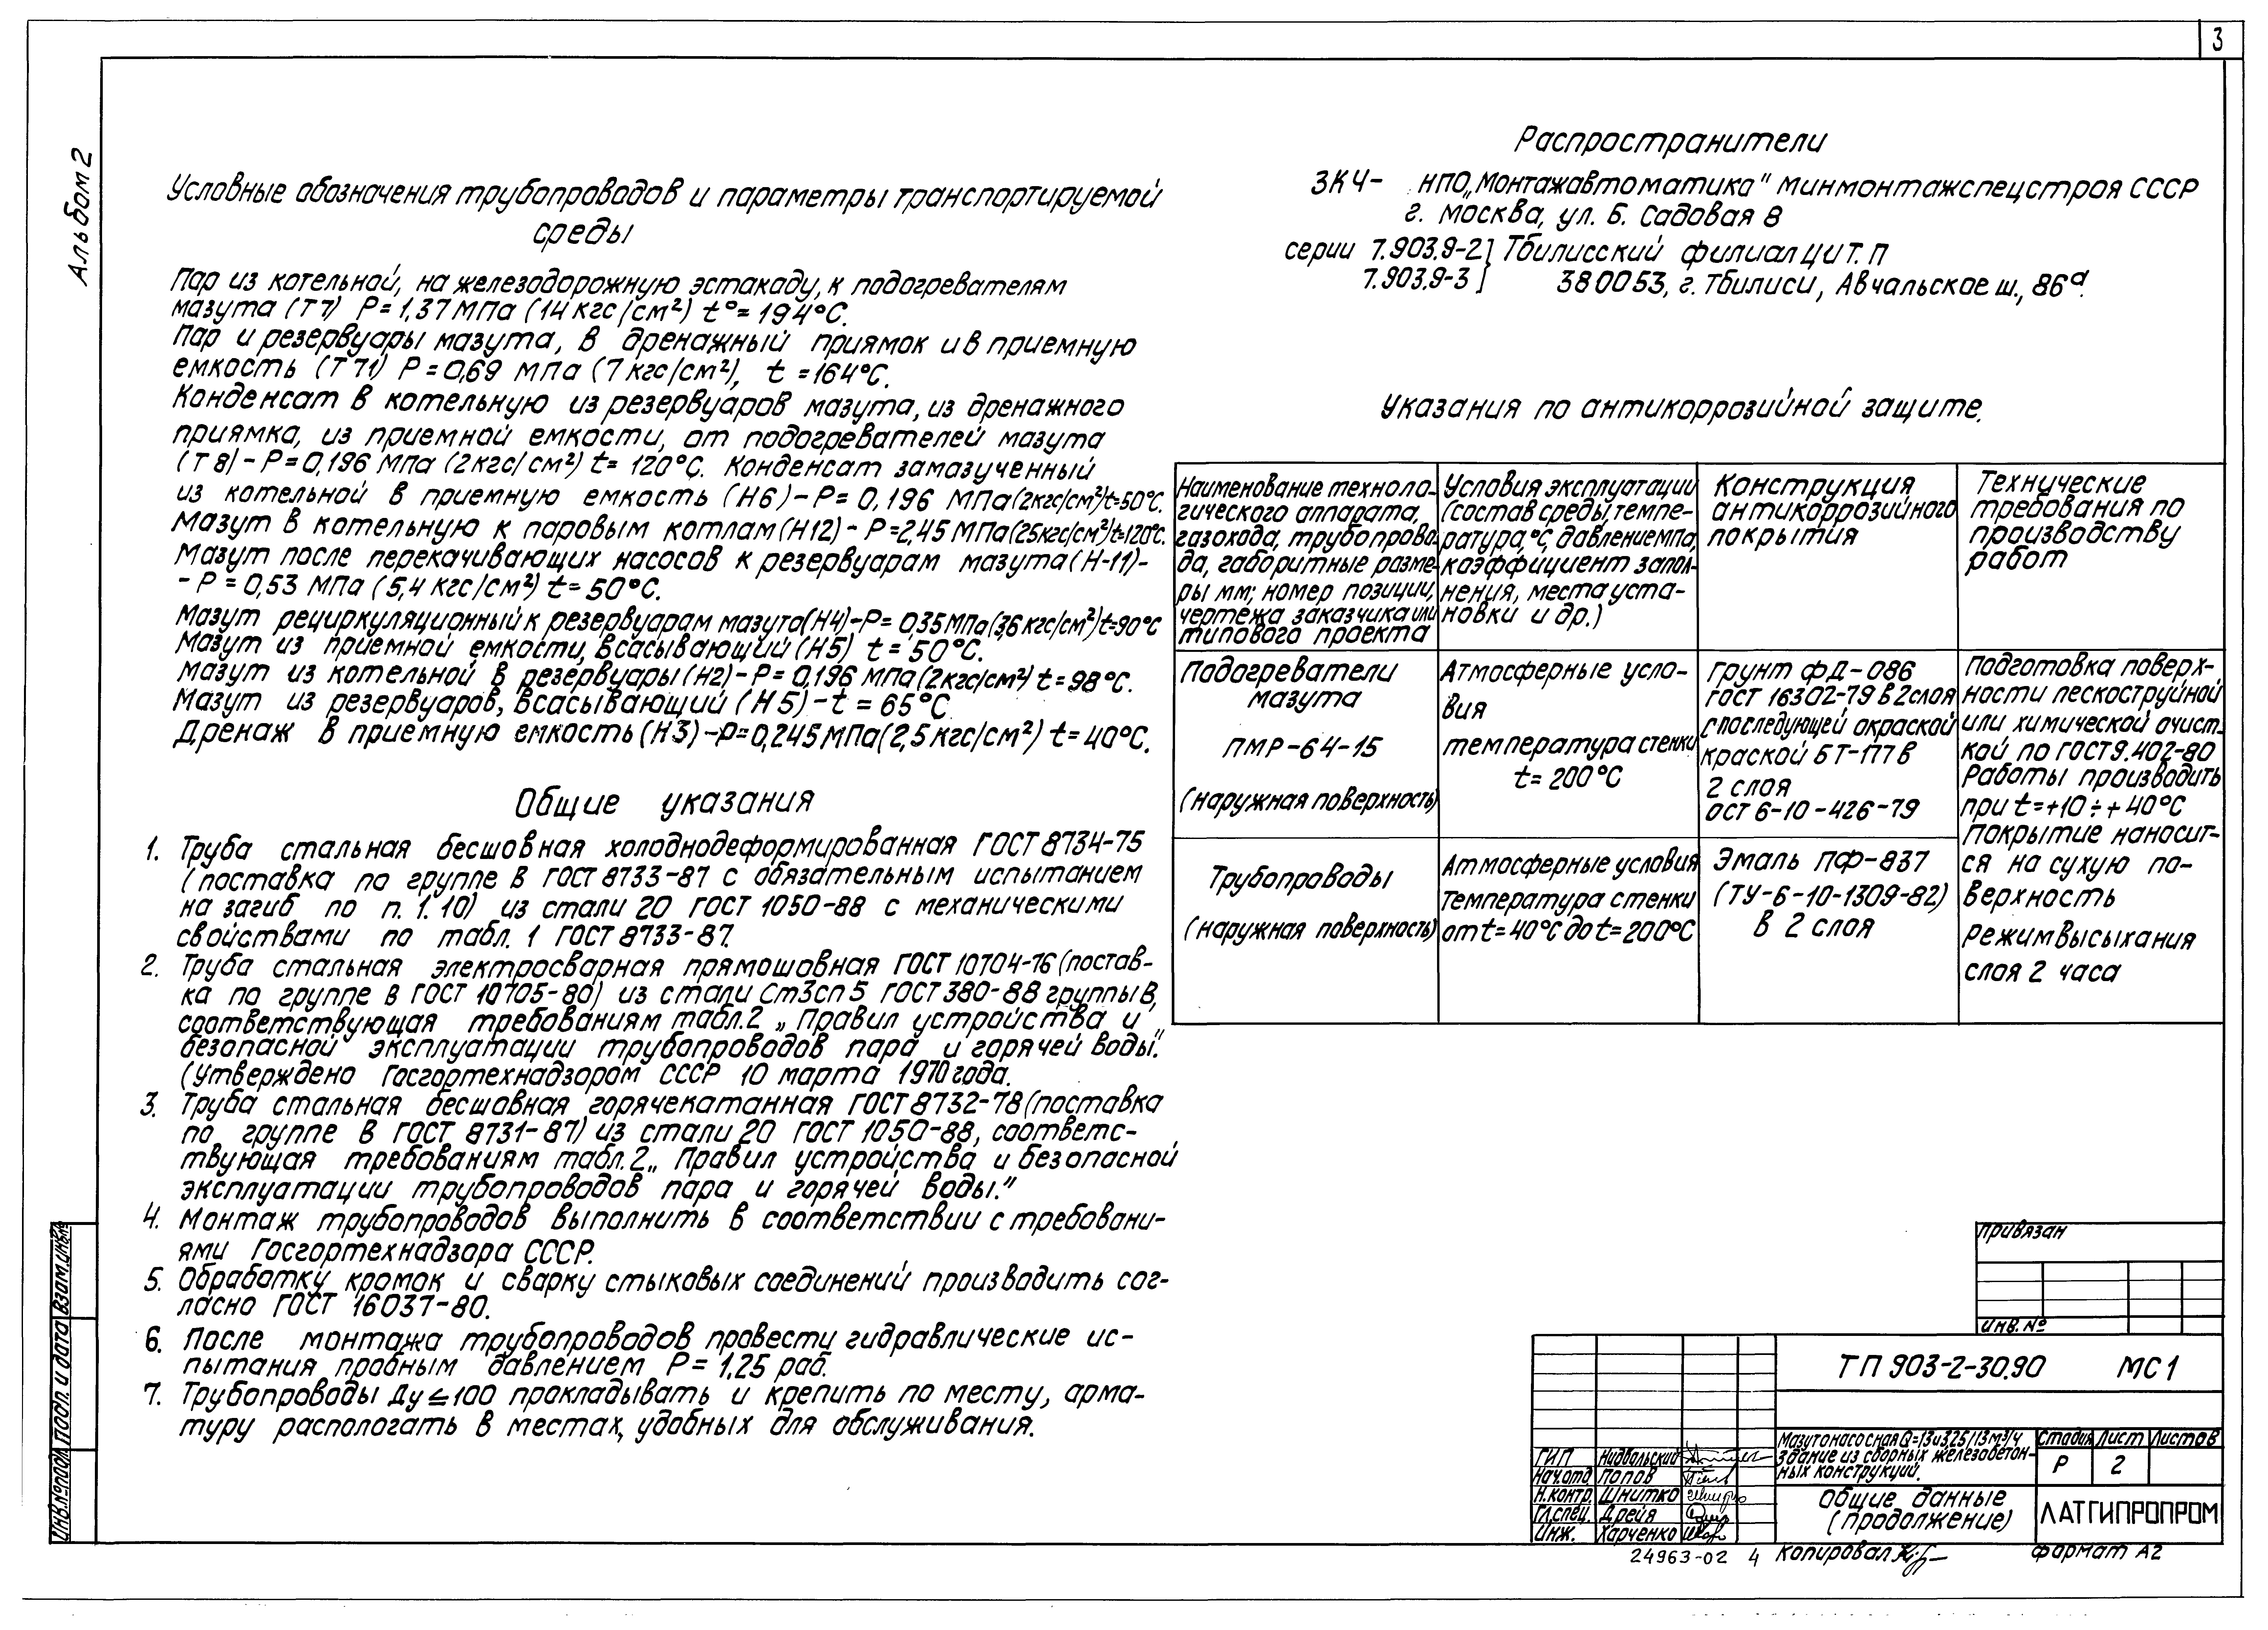 3
Альбом 2
Условные обозначения трубопроводов и параметры транспортируемой
среды
Пар из котельной, на железодорожную эстакаду, к подогревателям
мазута (Т7) Р=1,37МПа (14кгс/см²) t°=194°С.
Пар и резервуары мазута, в дренажный приямок и в приемную
емкость (Т71) Р=0,69 МПа (7кгс/см²), t=164°С.
Конденсат в котельную из резервуаров мазута, из дренажного
приямка, из приемной емкости, от подогревателей мазута
(Т8)-Р=0,196 МПа (2кгс/см²) t= 120°С. Конденсат замазученный
из котельной в приемную емкость (Н6)-Р= 0,196 МПа(2кгс/см²)t=50°С.
Мазут в котельную к паровым котлам(Н12)- Р=2,45 МПа(25кгс/см²)t=120°С.
Мазут после перекачивающих насосов к резервуарам мазута(Н-11)-
-Р = 0,53 МПа (5,4 кгс/см²) t=50°С.
Мазут рециркуляционный к резервуарам мазута(Н4)-Р= 0,35МПа(3,6кгс/см²)t=90°С
Мазут из приемной емкости, всасывающий (Н5) t=50°С.
Мазут из котельной в резервуары(Н2)-Р=0,196 МПа(2кгс/см²) t=98°С.
Мазут из резервуаров, всасывающий (Н5)-t = 65°С
Дренаж в приемную емкость(Н3)-Р=0,245МПа(2,5кгс/см²) t=40°С.
Общие указания
1. Труба стальная бесшовная холоднодеформированная ГОСТ 8734-75
(поставка по группе В ГОСТ 8733-87 с обязательным испытанием
на загиб по п. 1.10) из стали 20 ГОСТ 1050-88 с механическими
свойствами по табл. 1 ГОСТ 8733-87.
2. Труба стальная электросварная прямошовная ГОСТ 10704-76(постав-
ка по группе в ГОСТ 10705-80) из стали Ст3сп5 ГОСТ 380-88 группы В,
соответствующая требованиям табл.2 „Правил устройства и
безопасной эксплуатации трубопроводов пара и горячей воды."
(Утверждено Госгортехнадзором СССР 10 марта 1970года.
3. Труба стальная бесшовная горячекатанная ГОСТ 8732-78(поставка
по группе В ГОСТ 8731-87) из стали 20 ГОСТ 1050-88, соответс-
твующая требованиям табл.2„ Правил устройства и безопасной
эксплуатации трубопроводов пара и горячей воды."
4. Монтаж трубопроводов выполнить в соответствии с требовани-
ями Госгортехнадзора СССР.
5. Обработку кромок и сварку стыковых соединений производить сог-
ласно ГОСТ 16037-80.
6. После монтажа трубопроводов провести гидравлические ис-
пытания пробным давлением Р= 1,25 раб.
7. Трубопроводы Ду≤100 прокладывать и крепить по месту, арма-
туру распологать в местах, удобных для обслуживания.
Распространители
ЗК4- НПО„Монтажавтоматика" Минмонтажспецстроя СССР
г. Москва, ул. Б. Садовая 8
серии 7.903.9-2] Тбилисский филиал ЦИТ.П
7.903.9-3] 380053, г. Тбилиси, Авчальское ш., 86ᵃ.
Указания по антикоррозийной защите.
Наименование техноло-
гического аппарата,
газохода, трубопрово-
да, габоритные разме-
ры мм; номер позиции,
чертежа заказчика или
типового проекта
Условия эксплуатации
(состав среды, темпе-
ратура,°С, давление МПа,
коэффициент запол-
нения, места уста-
новки и др.)
Конструкция
антикоррозийного
покрытия
Технические
требования по
производству
работ
Подогреватели
мазута
ПМР-64-15
(наружная поверхность)
Атмосферные усло-
вия
температура стенки
t= 200°С
Грунт ФД-086
ГОСТ 16302-79 в 2слоя
с последующей окраской
краской БТ-177 в
2 слоя
ОСТ 6-10-426-79
Подготовка поверх-
ности пескоструйной
или химической очист-
кой по ГОСТ 9.402-80
Работы производить
при t=+10÷+40°С
Покрытие наносит-
ся на сухую по-
верхность
режим высыхания
слоя 2 часа
Трубопроводы
(наружная поверхность)
Атмосферные условия
температура стенки
от t=40°С до t=200°С
Эмаль ПФ-837
(ТУ-6-10-1309-82)
в 2 слоя
Привязан
Инв. №
ТП 903-2-30.90 МС1
Мазутонасосная Q=13и3,25/13м³/ч
здание из сборных железобетон-
ных конструкций.
Стадия Лист Листов
Р 2
Общие данные
(продолжение)
ЛАТГИПРОПРОМ
ГИП Нидвальский
Нач.отд Попов
Н.контр. Шнитко
Гл.спец. Дрейя
Инж. Харченко
24963-02 4 Копировал Формат А2
Взам.инв.№
Подп. и дата
Инв.№подл